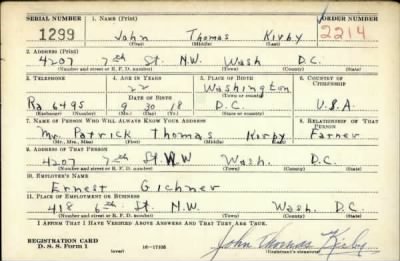 SERIAL NUMBER 1. NAME (Print) ORDER NUMBER
1299 John Thomas Kirby 2214
(First) (Middle) (Last)
2. ADDRESS (Print)
4207 7th St. N.W. Wash D.C.
(Number and street or R. F. D. number) (Town) (County) (State)
3. TELEPHONE 4. AGE IN YEARS 5. PLACE OF BIRTH 6. COUNTRY OF CITIZENSHIP
22 Washington
(Town or county)
DATE OF BIRTH
Ra 6495 9 30 18 D.C. U.S.A
(Exchange) (Number) (Mo.) (Day) (Yr.) (State or country)
7. NAME OF PERSON WHO WILL ALWAYS KNOW YOUR ADDRESS 8. RELATIONSHIP OF THAT PERSON
Mr. Patrick Thomas Kirby Father
(Mr., Mrs., Miss) (First) (Middle) (Last)
9. ADDRESS OF THAT PERSON
4207 7th St. NW Wash. D.C.
(Number and street or R. F. D. number) (Town) (County) (State)
10. EMPLOYER'S NAME
Ernest Gichner
11. PLACE OF EMPLOYMENT OR BUSINESS
418 6th St. N.W. Wash. D.C.
(Number and street or R. F. D. number) (Town) (County) (State)
I AFFIRM THAT I HAVE VERIFIED ABOVE ANSWERS AND THAT THEY ARE TRUE.
REGISTRATION CARD
D. S. S. Form 1 (over) 16-17105 John Thomas Kirby
(Registrant's signature)